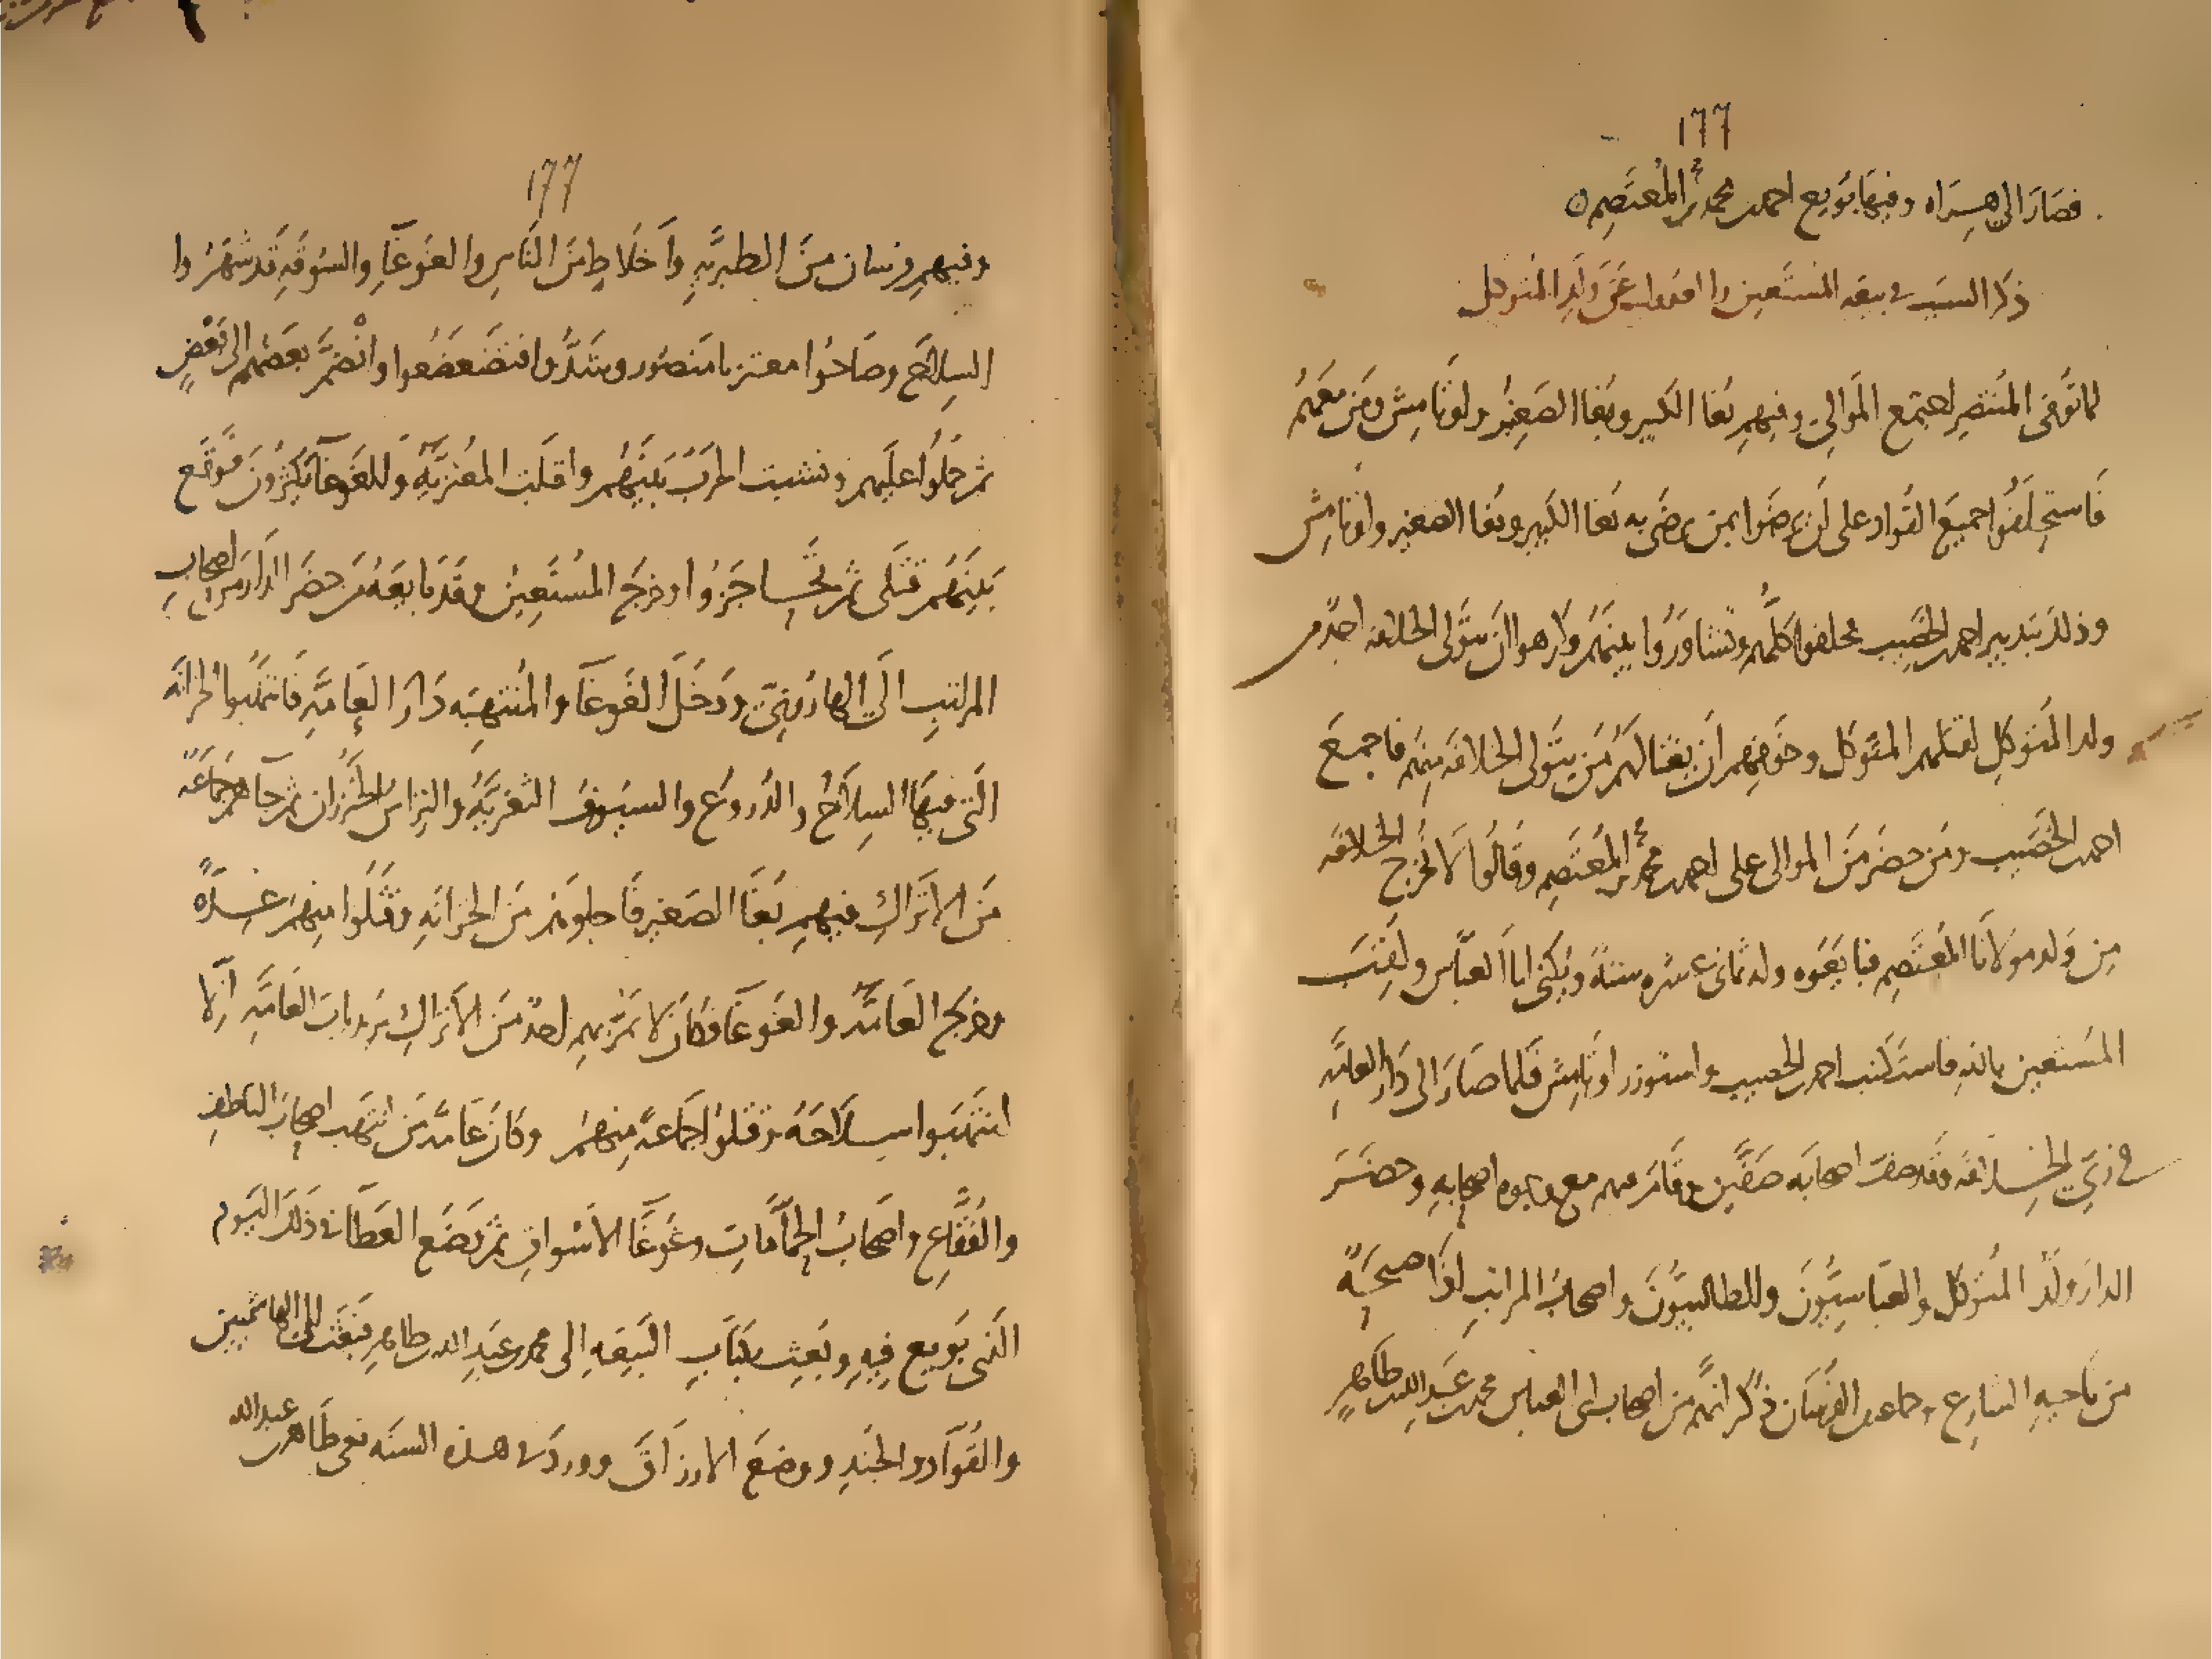 ١٦٦
فصَارَ الى هِرَاه وفيهَا بُويع احمد بن محمد بن المُعتَصِم ه
ذكر السبَب في بيعه المُستَعين وا عَن وَلَدِ المُتَوكل
لما تُوفى المُنتصِر اجتمع المَوالي وفيهِم بُغا الكبير وبُغا الصَغِيرُ واوتَامِش ومَن مَعَهُم
فَاستحلَفُوا جميعَ القُواد على اَن يَرضَوا بمن يَرضَى به بُغا الكَبِير وبُغا الصغير واوتامِش
وذلكَ بتدبير احمد بن الخصِيب فحلفوا كلّهُم وتشاوَرُوا بينَهُم وكرهوا ان يتَولى الخلافه احَدٌ من
ولد المُتوكِل لقتلهم المتَوكل وخَوفِهم ان يغتَالهُم مَن يتَولى الخلافه منهُم فاجمعَ
احمد بن الخَصِيب ومَن حضَر مَن الموالى على احمد بن محمد بن المُعتَصِم وقَالُوا لَا تخرُج الخلافَه
مِن وَلد مولانَا المُعتَصِم فبايَعُوه وله ثمانى عشره سَنَةً ويُكنى ابا العبّاس ولقّبَ
المستعين بالله فاستَكتب احمد بن الخصيب واستوزر اوتامِش فلما صَارَ الى دَار العامّهِ
في زِيّ الخِلافَه وقد صفّ اصحابَه صَفّين وقَامَ فيهم مع وجوه اصحابهِ وحضَرَ
الدارَ ولَدُ المُتوكل والعَباسِيُّونَ والطالبيُّونَ واصحابُ المراتبِ اذا صيحَةٌ
من نَاحيهِ الشارِع وجماعه الفُرسَان ذكر انّهُم من اصحاب ابى العباس محمد بن عَبدِ اللهِ بن طَاهِرٍ
١٦٧
وفيهِم فرسان مِنَ الطبرِيّهِ وَاخلَاطٍ مَن النَّاسِ والغَوغَاءِ والسُوقَهِ قَد شَهَرُوا
السِلاحَ وصَاحُوا معتز يا مَنصُور وشَدُّوا فتضَعضَعُوا وانْضمَّ بعضُهُم الى بَعْضٍ
ثم حَمَلُوا عليَهِم ونشبت الحَربُ بَينَهُم واقبلَت المُعتزيّهُ والغَوغَا يَكثُرُونَ فوَقَع
بَينَهُم قتلَى ثم تحَاجَزُوا وخرجَ المُستَعِينُ وقَد بايعَهُ مَن حضَر الدَارَ من اصحابِ
المراتِبِ الَى الهارُونىّ ودَخَلَ الغَوغَا والمُنتَهِبَه دَارَ العَامّهِ فَانتهَبُوا الخزانَه
التى فيهَا السِلَاحُ والدُروعُ والسيُوفُ الثغريّهُ والتِرَاسُ الخَيْزُران ثم جَآهم جَمَاعَةٌ
مَن الاترَاكِ فيهِم بُغَا الصَغير فَاجلوهُم مَن الخِزانَهِ وقَتَلُوا مِنهُم عِدَّةً
وخرجَ العَامَّهُ والغَوغَا فكَانَ لا يمُرّ بهِم احدٌ مَن الاترَاكِ يُريدُ بابَ العَامّهِ اِلّا
انتَهَبوا سِلَاحَهُ وقتلُوا جماعةً مِنهُم وكانَ عَامّهُ مَن انتَهَب اصحابَ النَاطِفِ
والفُقّاعِ واصحَابُ الحَمَّامَاتِ وغَوغَا الاسْواقِ ثم وَضَع العَطَآ فى ذلكَ اليَوم
الذى بُويع فيهِ وبَعَث بكتَابِ البَيعَهِ الى محمد بن عَبدِ الله بن طاهرٍ فبَعَث الى الهاشميين
والقُوّادِ والجُندِ ووضعَ الارزَاقَ ووردَ فى هذه السنَه نعى طَاهِر بن عبد الله